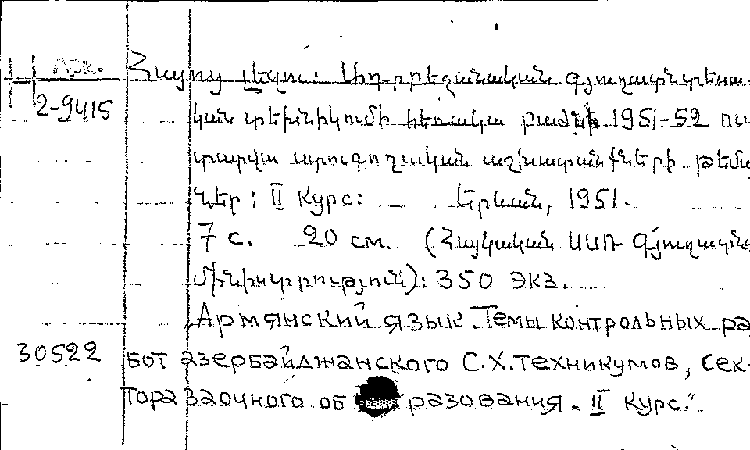 Арк. Հայոց լեզու: Ադրբեջանական գյուղատնտեսա-
2-9415 կան տեխնիկումի հեռակա բաժնի 1951-52 ու
տարվա ստուգողական աշխատանքների թեմա
ներ: II Курс: Երևան, 1951.
7 с. 20 см. (Հայկական ՍՍՌ Գյուղատնտ
Մինիստրություն): 350 экз.
Армянский язык. Темы контрольных ра
30522 бот азербайджанского С.Х. техникумов, сек-
тора заочного об разования. II Курс."